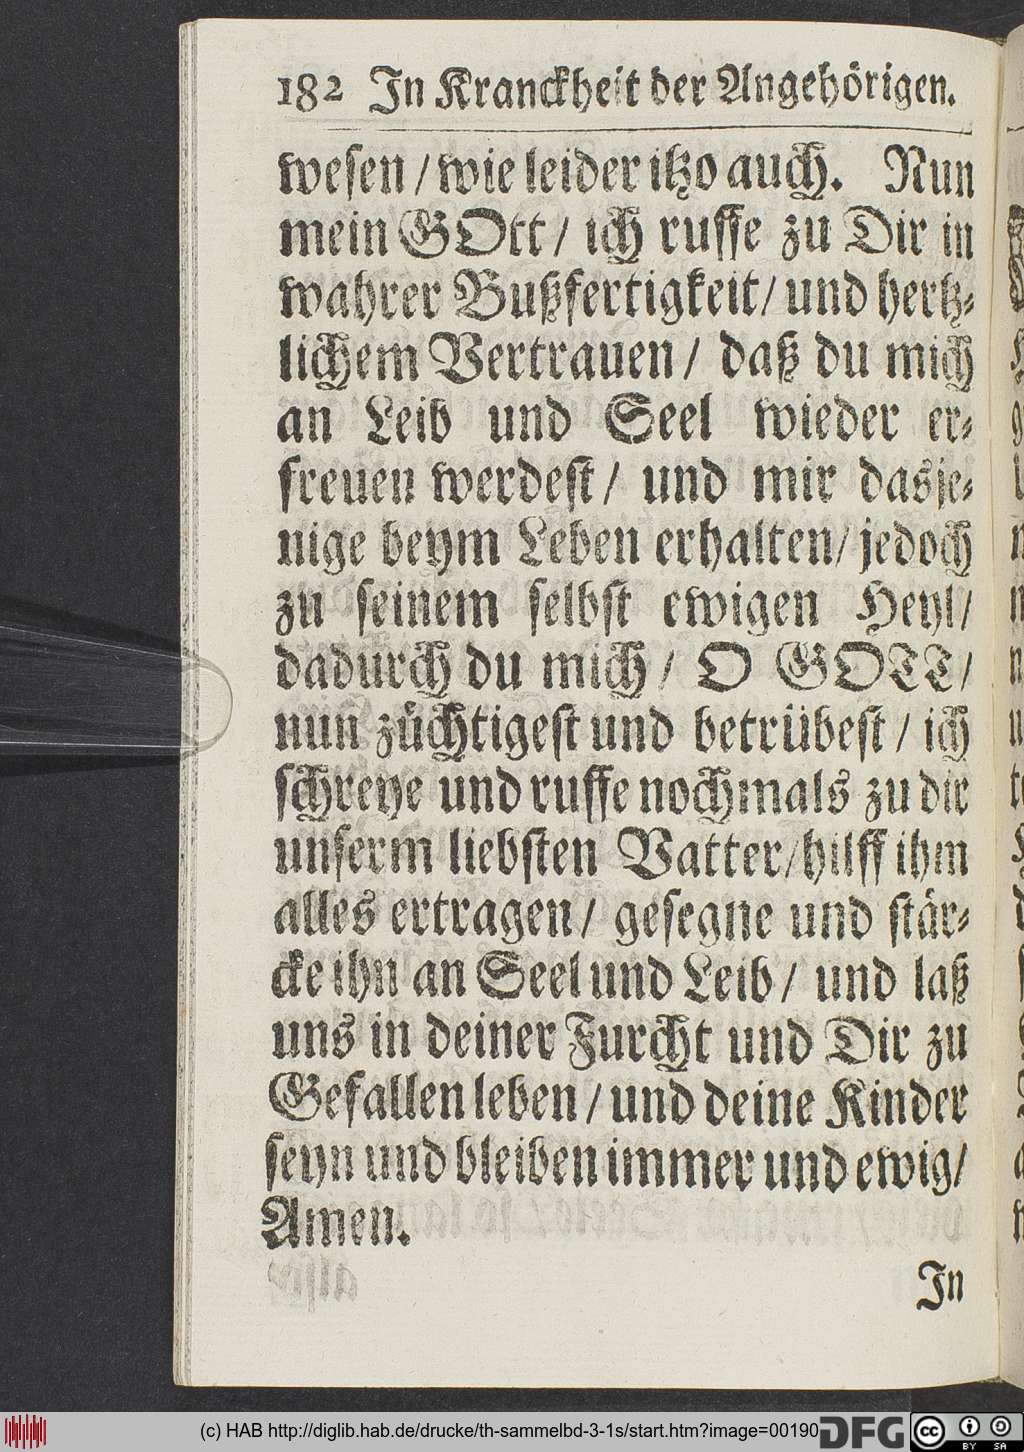 182 In Kranckheit der Angehörigen.
wesen / wie leider itzo auch. Nun
mein GOtt / ich ruffe zu Dir in
wahrer Bußfertigkeit / und hertz-
lichem Vertrauen / daß du mich
an Leib und Seel wieder er-
freuen werdest / und mir dasje-
nige beym Leben erhalten / jedoch
zu seinem selbst ewigen Heyl /
dadurch du mich / O GOTT /
nun züchtigest und betrübest / ich
schreye und ruffe nochmals zu dir
unserm liebsten Vatter / hilff ihm
alles ertragen / gesegne und stär-
cke ihn an Seel und Leib / und laß
uns in deiner Furcht und Dir zu
Gefallen leben / und deine Kinder
seyn und bleiben immer und ewig /
Amen.
In
(c) HAB http://diglib.hab.de/drucke/th-sammelbd-3-1s/start.htm?image=00190
DFG
cc BY SA